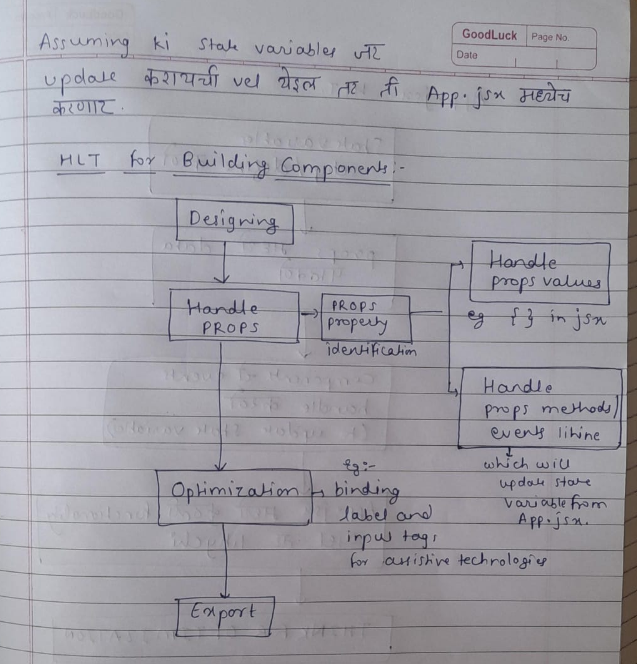 GoodLuck Page No.
Date
Assuming ki state variables जर
update करायची vel येइल तर ती App.jsx मध्येच
करणार.
HLT for Building Components:-
Designing
Handle
PROPS
PROPS
property
identification
Handle
props values
eg { } in jsx
Handle
props methods/
events lihine
which will
update state
variable from
App.jsx.
Optimization
Eg:-
binding
label and
input tags
for assistive technologies
Export